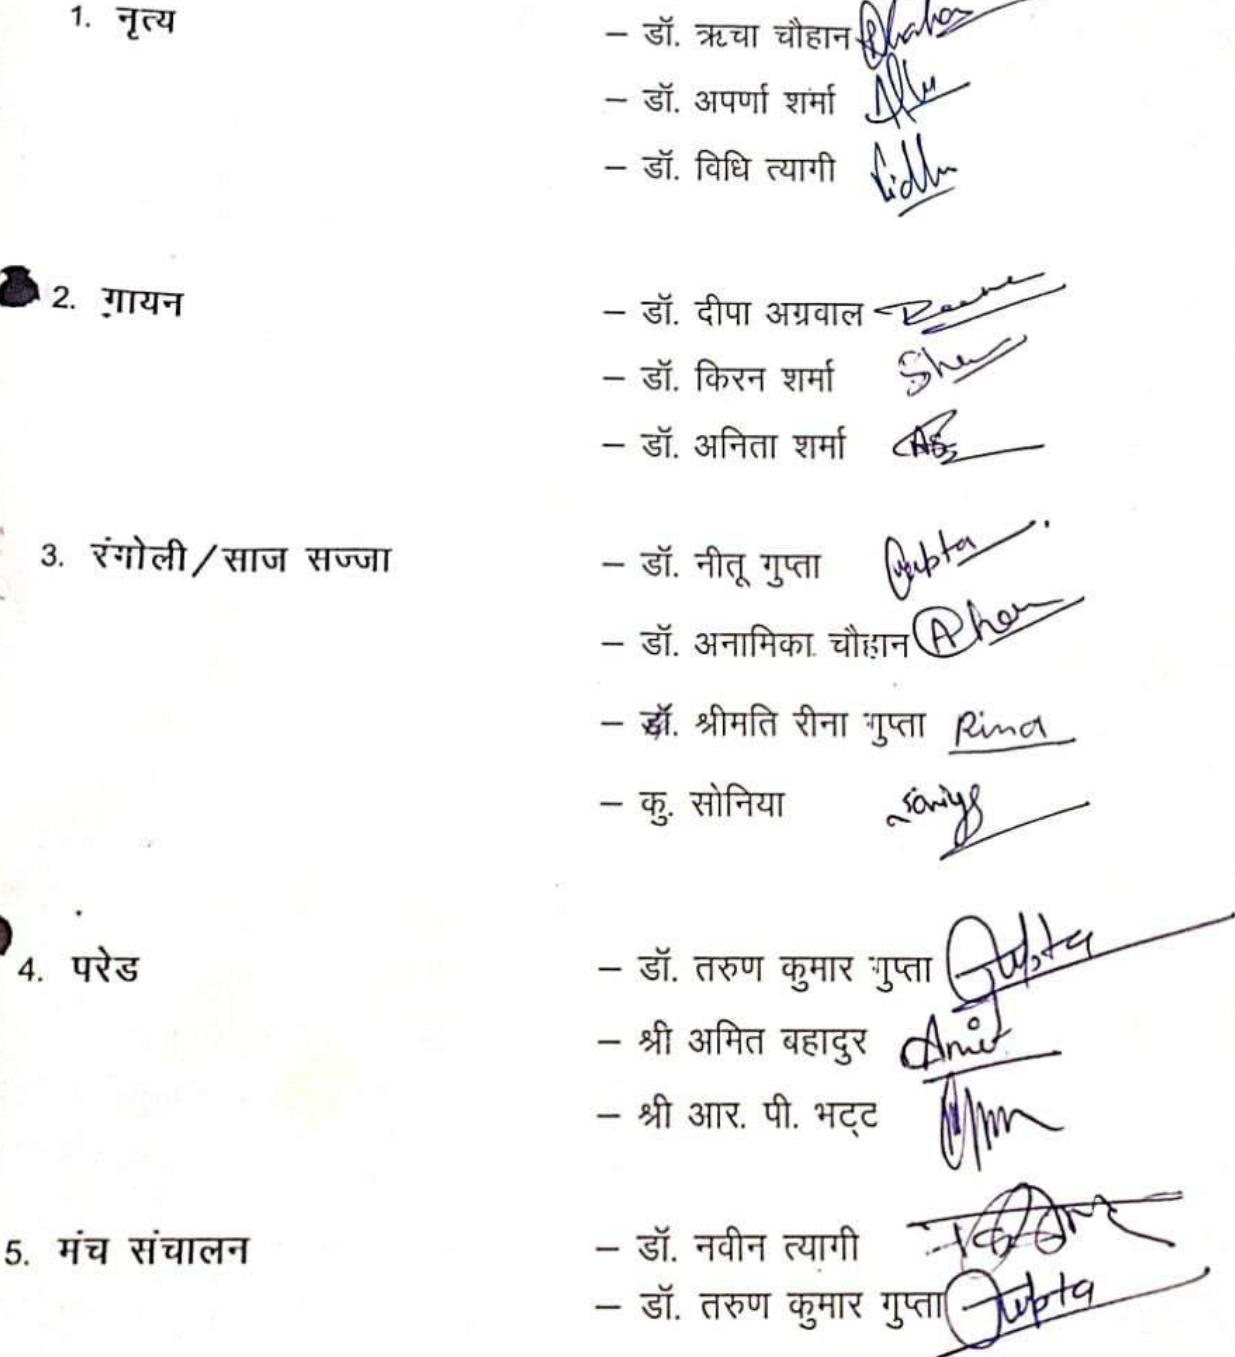 1. नृत्य – डॉ. ऋचा चौहान
– डॉ. अपर्णा शर्मा
– डॉ. विधि त्यागी
2. गायन – डॉ. दीपा अग्रवाल
– डॉ. किरन शर्मा
– डॉ. अनिता शर्मा
3. रंगोली/साज सज्जा – डॉ. नीतू गुप्ता Gupta
– डॉ. अनामिका चौहान
– डॉ. श्रीमति रीना गुप्ता Rina
– कु. सोनिया
4. परेड – डॉ. तरुण कुमार गुप्ता Gupta
– श्री अमित बहादुर Amit
– श्री आर. पी. भट्ट
5. मंच संचालन – डॉ. नवीन त्यागी
– डॉ. तरुण कुमार गुप्ता Gupta